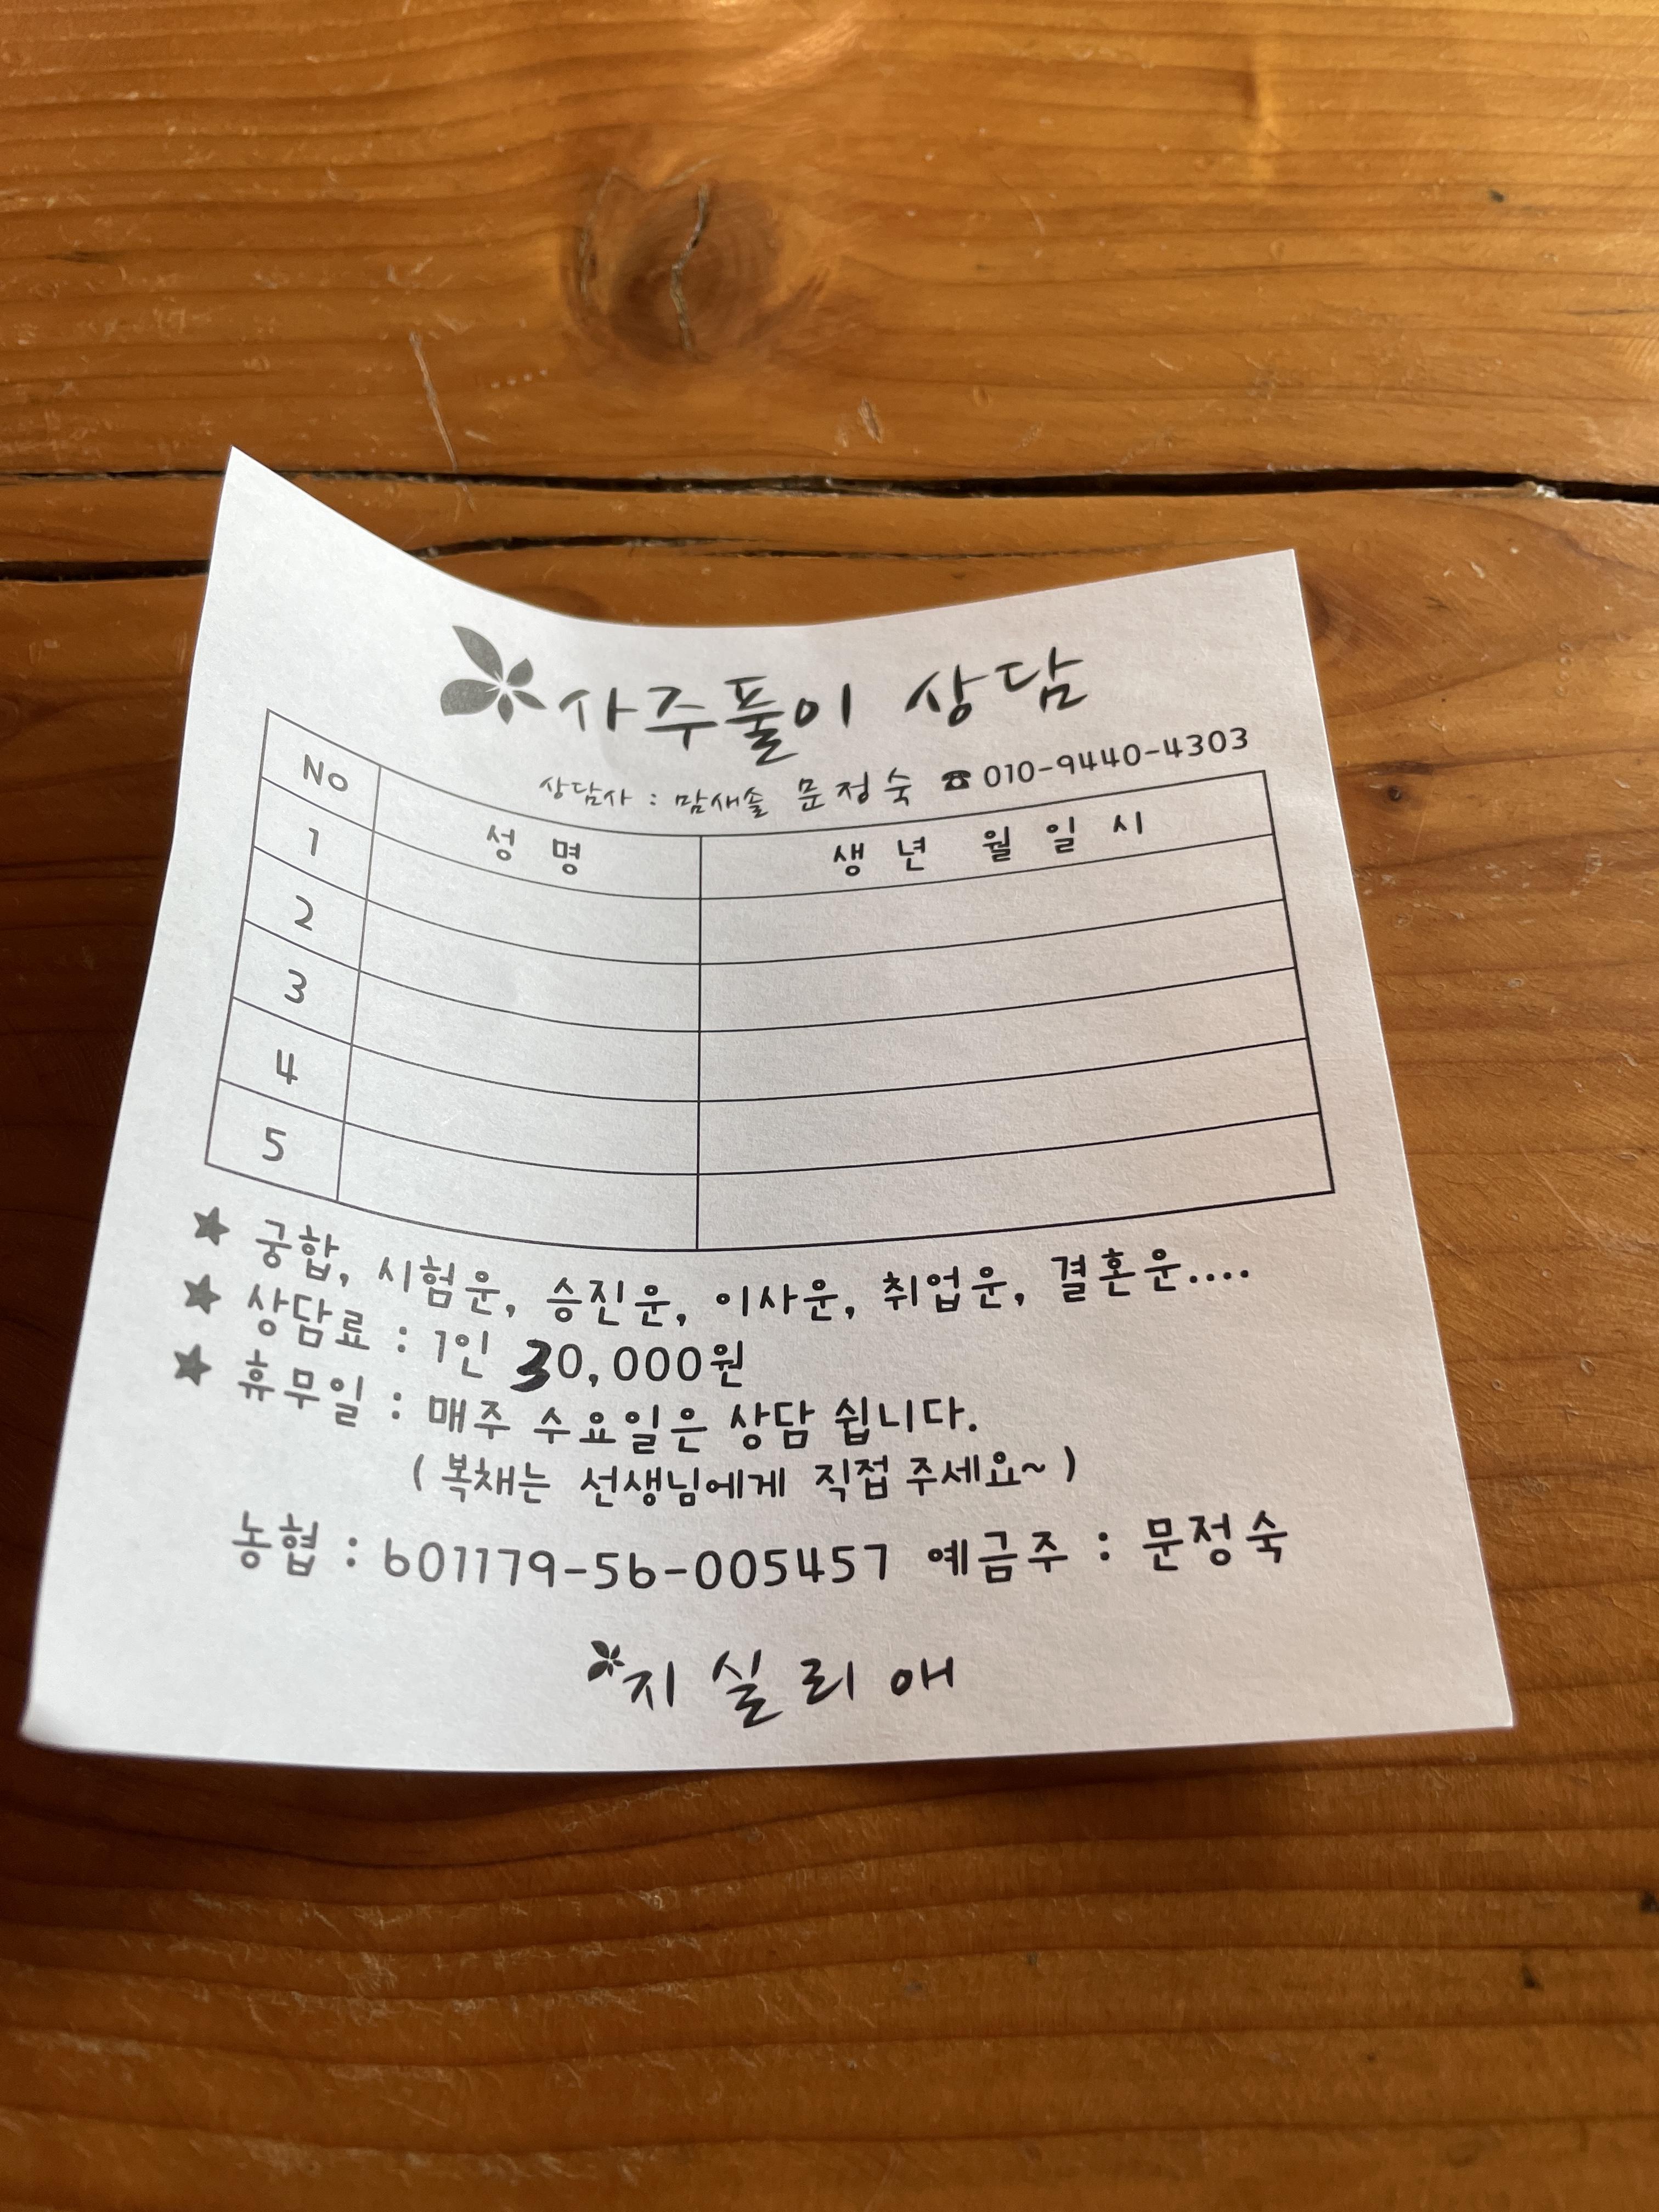 사주풀이 상담
상담사 : 맘새솔 문정숙 ☎ 010-9440-4303
No 성 명 생 년 월 일 시
1
2
3
4
5
★ 궁합, 시험운, 승진운, 이사운, 취업운, 결혼운....
★ 상담료 : 1인 30,000원
★ 휴무일 : 매주 수요일은 상담 쉽니다.
( 복채는 선생님에게 직접 주세요~ )
농협 : 601179-56-005457 예금주 : 문정숙
지실리애